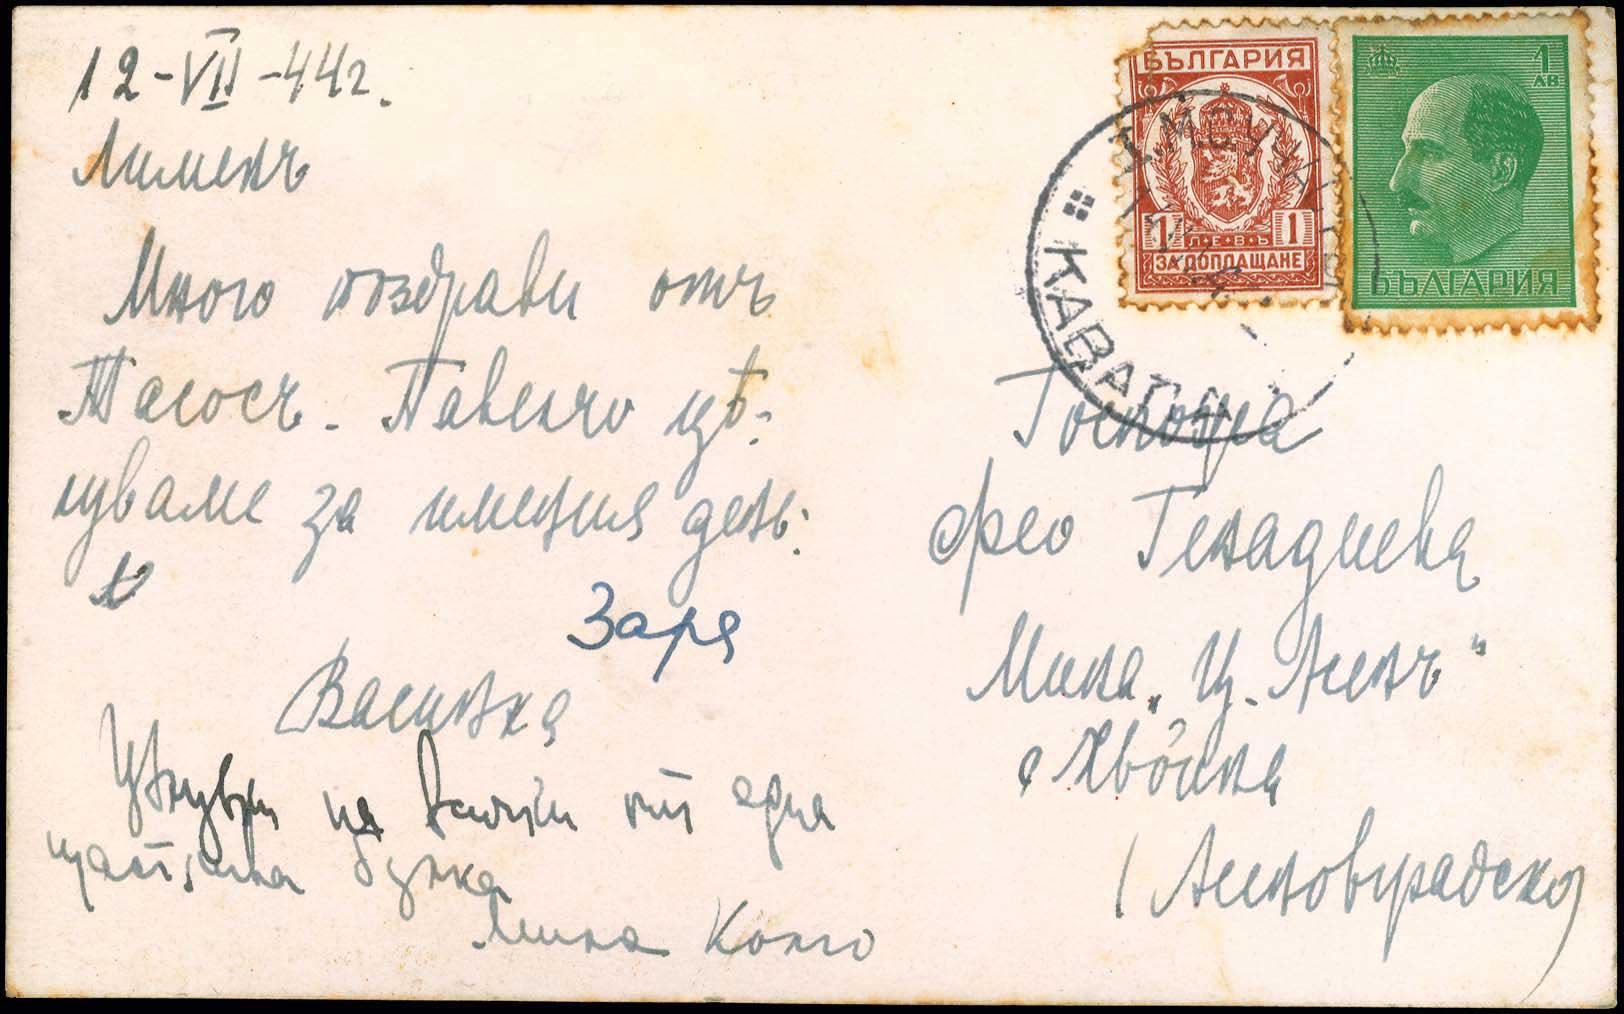 12-VII-44г.
Лименъ
Много поздрави отъ
Тасосъ. Павенчо цѣ-
луваме за имения день.
Заря
Василка
на всички отъ една
щастлива булка
Мина Кольо
БЪЛГАРИЯ
1 1
ЛЕВЪ
ЗА ДОПЛАЩАНЕ
1
ЛВ
БЪЛГАРИЯ
КАВАЛА
Госпожа
Фео Генадиева
Мина „Ц. Асенъ"
с. Хвойна
(Асеновградско)